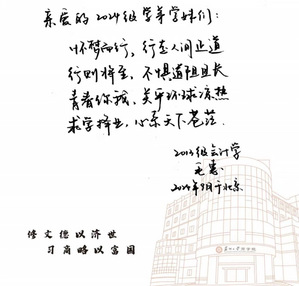 亲爱的2024级学弟学妹们：
怀梦而行，行走人间正道
行则将至，不惧道阻且长
青春你我，关乎环球凉热
求学择业，心系天下苍茫
2013级会计学
毛惠
2024年9月于北京
修文德以济世
习商略以富国